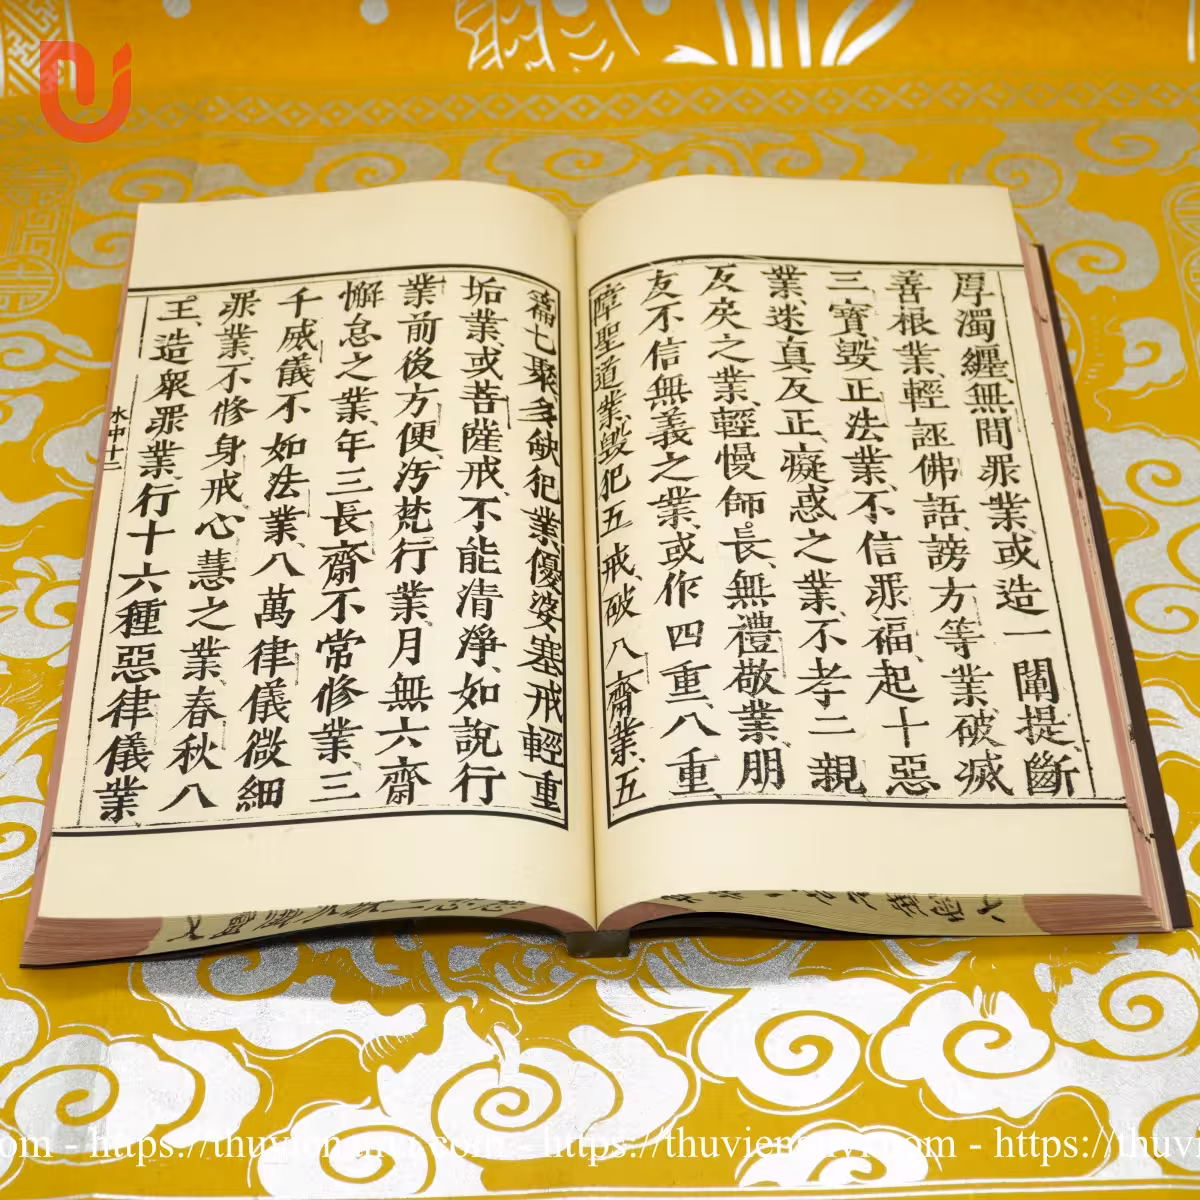 厚濁纏、無間罪業、或造一闡提、斷
善根業、輕誣佛語、謗方等業、破滅
三寶、毀正法業、不信罪福、起十惡
業、迷真反正、癡惑之業、不孝二親
反戾之業、輕慢師長、無禮敬業、朋
友不信無義之業、或作四重、八重、
障聖道業、毀犯五戒、破八齋業、五
篇七聚、多缺犯業、優婆塞戒輕重
垢業、或菩薩戒、不能清淨、如說行
業、前後方便、污梵行業、月無六齋
懈怠之業、年三長齋不常修業、三
千威儀不如法業、八萬律儀微細
罪業、不修身戒、心慧之業、春秋八
王、造眾罪業、行十六種惡律儀業
水中十二
https://thuvien
https://thuvien
https://thuvi